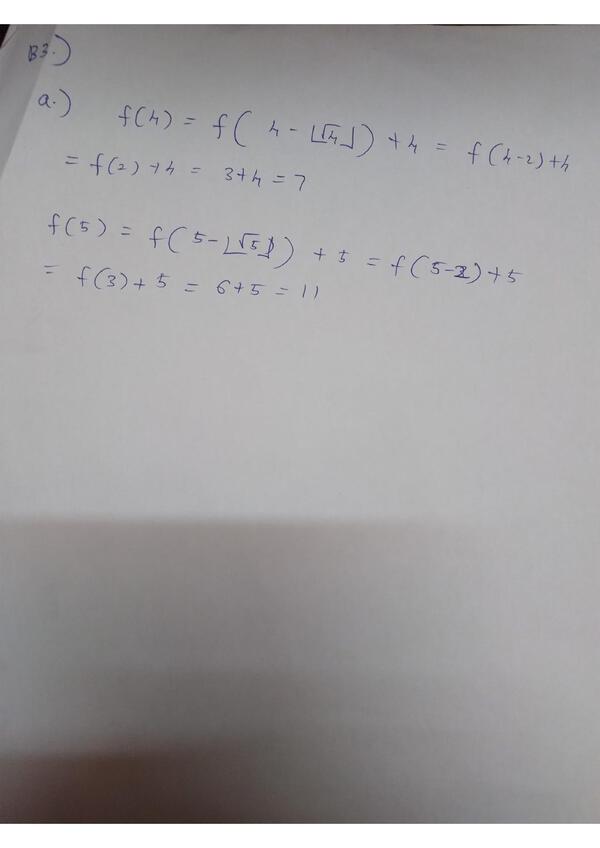 B3.)
a.) f(4) = f( 4 - ⌊√4⌋ ) + 4 = f(4-2)+4
= f(2) + 4 = 3+4 = 7
f(5) = f( 5 - ⌊√5⌋ ) + 5 = f(5-2)+5
= f(3) + 5 = 6+5 = 11